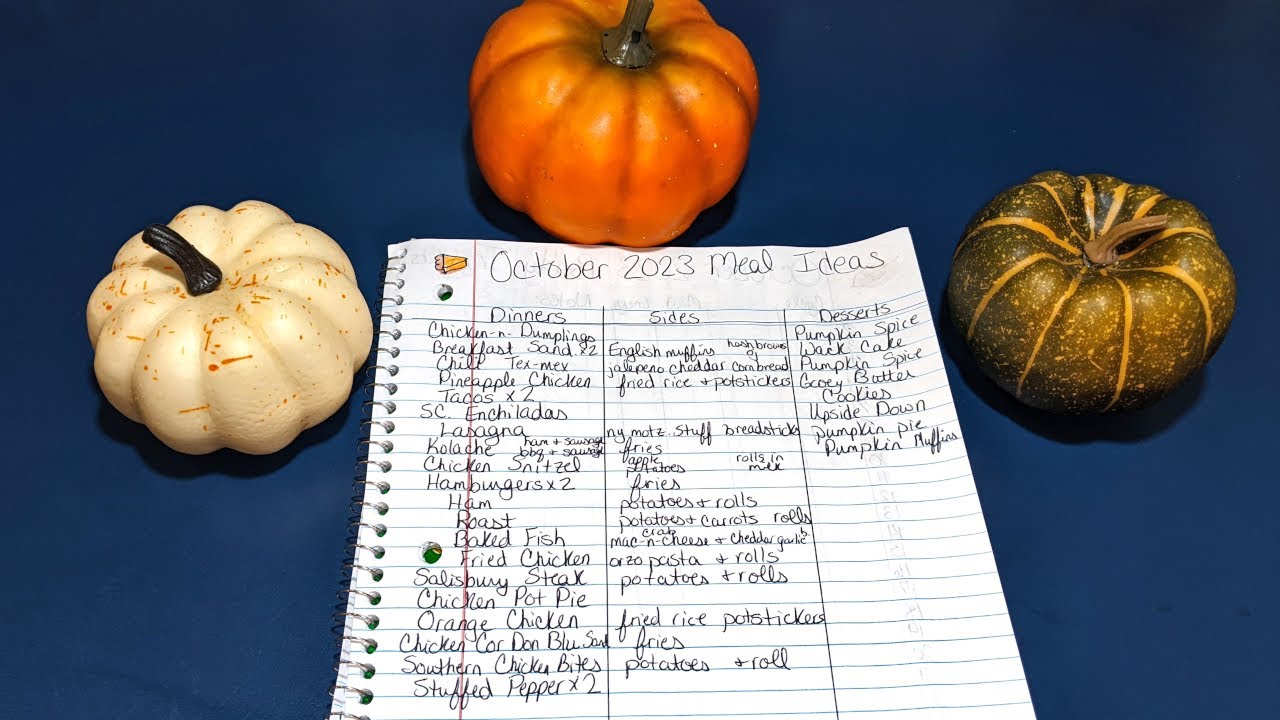 October 2023 Meal Ideas
Dinners Sides Desserts
Chicken-n-Dumplings Pumpkin Spice
Breakfast Sand x2 English muffins hashbrowns Wack Cake
Chili Tex-mex jalepeno cheddar cornbread Pumpkin Spice
Pineapple Chicken fried rice + potstickers Gooey Butter
Tacos x 2 Cookies
SC. Enchiladas Upside Down
Lasagna ny motz..stuff breadsticks pumpkin pie
Kolache ham + sausage bbq + sausage fries Pumpkin Muffins
Chicken Snitzel potatoes rolls in milk
Hamburgers x2 fries
Ham potatoes + rolls
Roast potatoes + carrots rolls
Baked Fish crab mac-n-cheese + cheddar garlic b
Fried Chicken orzo pasta + rolls
Salisbury Steak potatoes + rolls
Chicken Pot Pie
Orange Chicken fried rice potstickers
Chicken Cor Don Blu Sand fries
Southern Chicken Bites potatoes + roll
Stuffed Pepper x 2